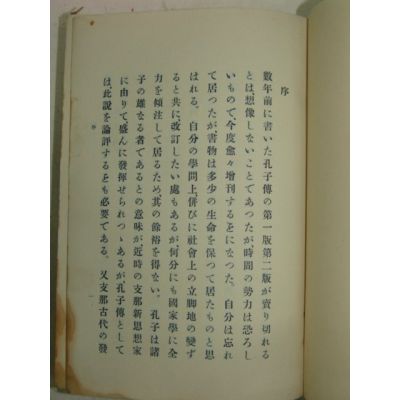 序
數年前に書いた孔子傳の第一版第二版が賣り切れる
とは、想像しないことであつたが時間の勢力は恐ろし
いもので、今度愈々增刊するとになつた。自分は忘れ
て居つたが、書物は多少の生命を保つて居たものと思
はれる。自分の學問上、併びに社會上の立脚地の變ず
ると共に、改訂したい處もあるが何分にも國家學に全
力を傾注して居るため、其の餘裕を得ない。孔子は諸
子の雄なる者であるとの意味が近時の支那新思想家
に由りて、盛んに發揮せられつゝあるが孔子傳として
は、此說を論評するとも必要である。又支那古代の發